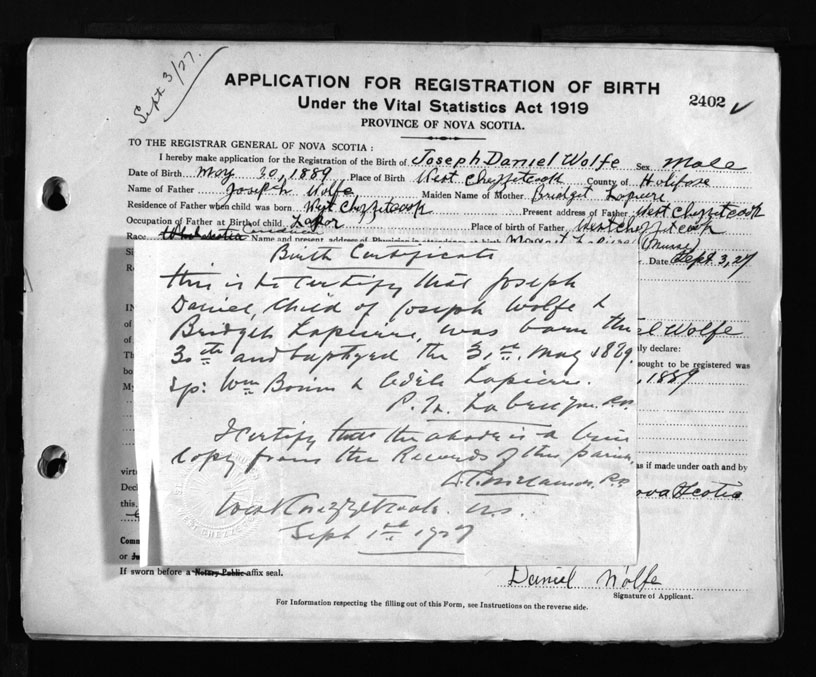 Sept 3/27.
APPLICATION FOR REGISTRATION OF BIRTH
Under the Vital Statistics Act 1919
2402
PROVINCE OF NOVA SCOTIA.
TO THE REGISTRAR GENERAL OF NOVA SCOTIA:
I hereby make application for the Registration of the Birth of Joseph Daniel Wolfe Sex Male
Date of Birth May 30, 1889 Place of Birth West Chezzetcook County of Halifax
Name of Father Joseph Wolfe Maiden Name of Mother Bridget Lapierre
Residence of Father when child was born West Chezzetcook Present address of Father West Chezzetcook
Occupation of Father at Birth of child Labor Place of birth of Father West Chezzetcook
Race Canadian Name and present address of Physician in attendance at birth Margaret Lapierre (Nurse)
Date Sept 3, 27
Birth Certificate
This is to certify that Joseph
Daniel, child of Joseph Wolfe &
Bridget Lapierre, was born the
30th and baptyzed the 31st, May 1889.
sp: Wm Bonin & Adèle Lapierre.
P.P.
I certify that the above is a true
copy from the Records of this parish,
P.P.
West Chezzetcook N.S.
Sept 1st 1927
el Wolfe
nly declare:
sought to be registered was
, 1889
as if made under oath and by
ova Scotia
virt
Decl
this
Com
or
If sworn before a Notary Public affix seal.
Daniel Wolfe
Signature of Applicant.
For Information respecting the filling out of this Form, see Instructions on the reverse side.